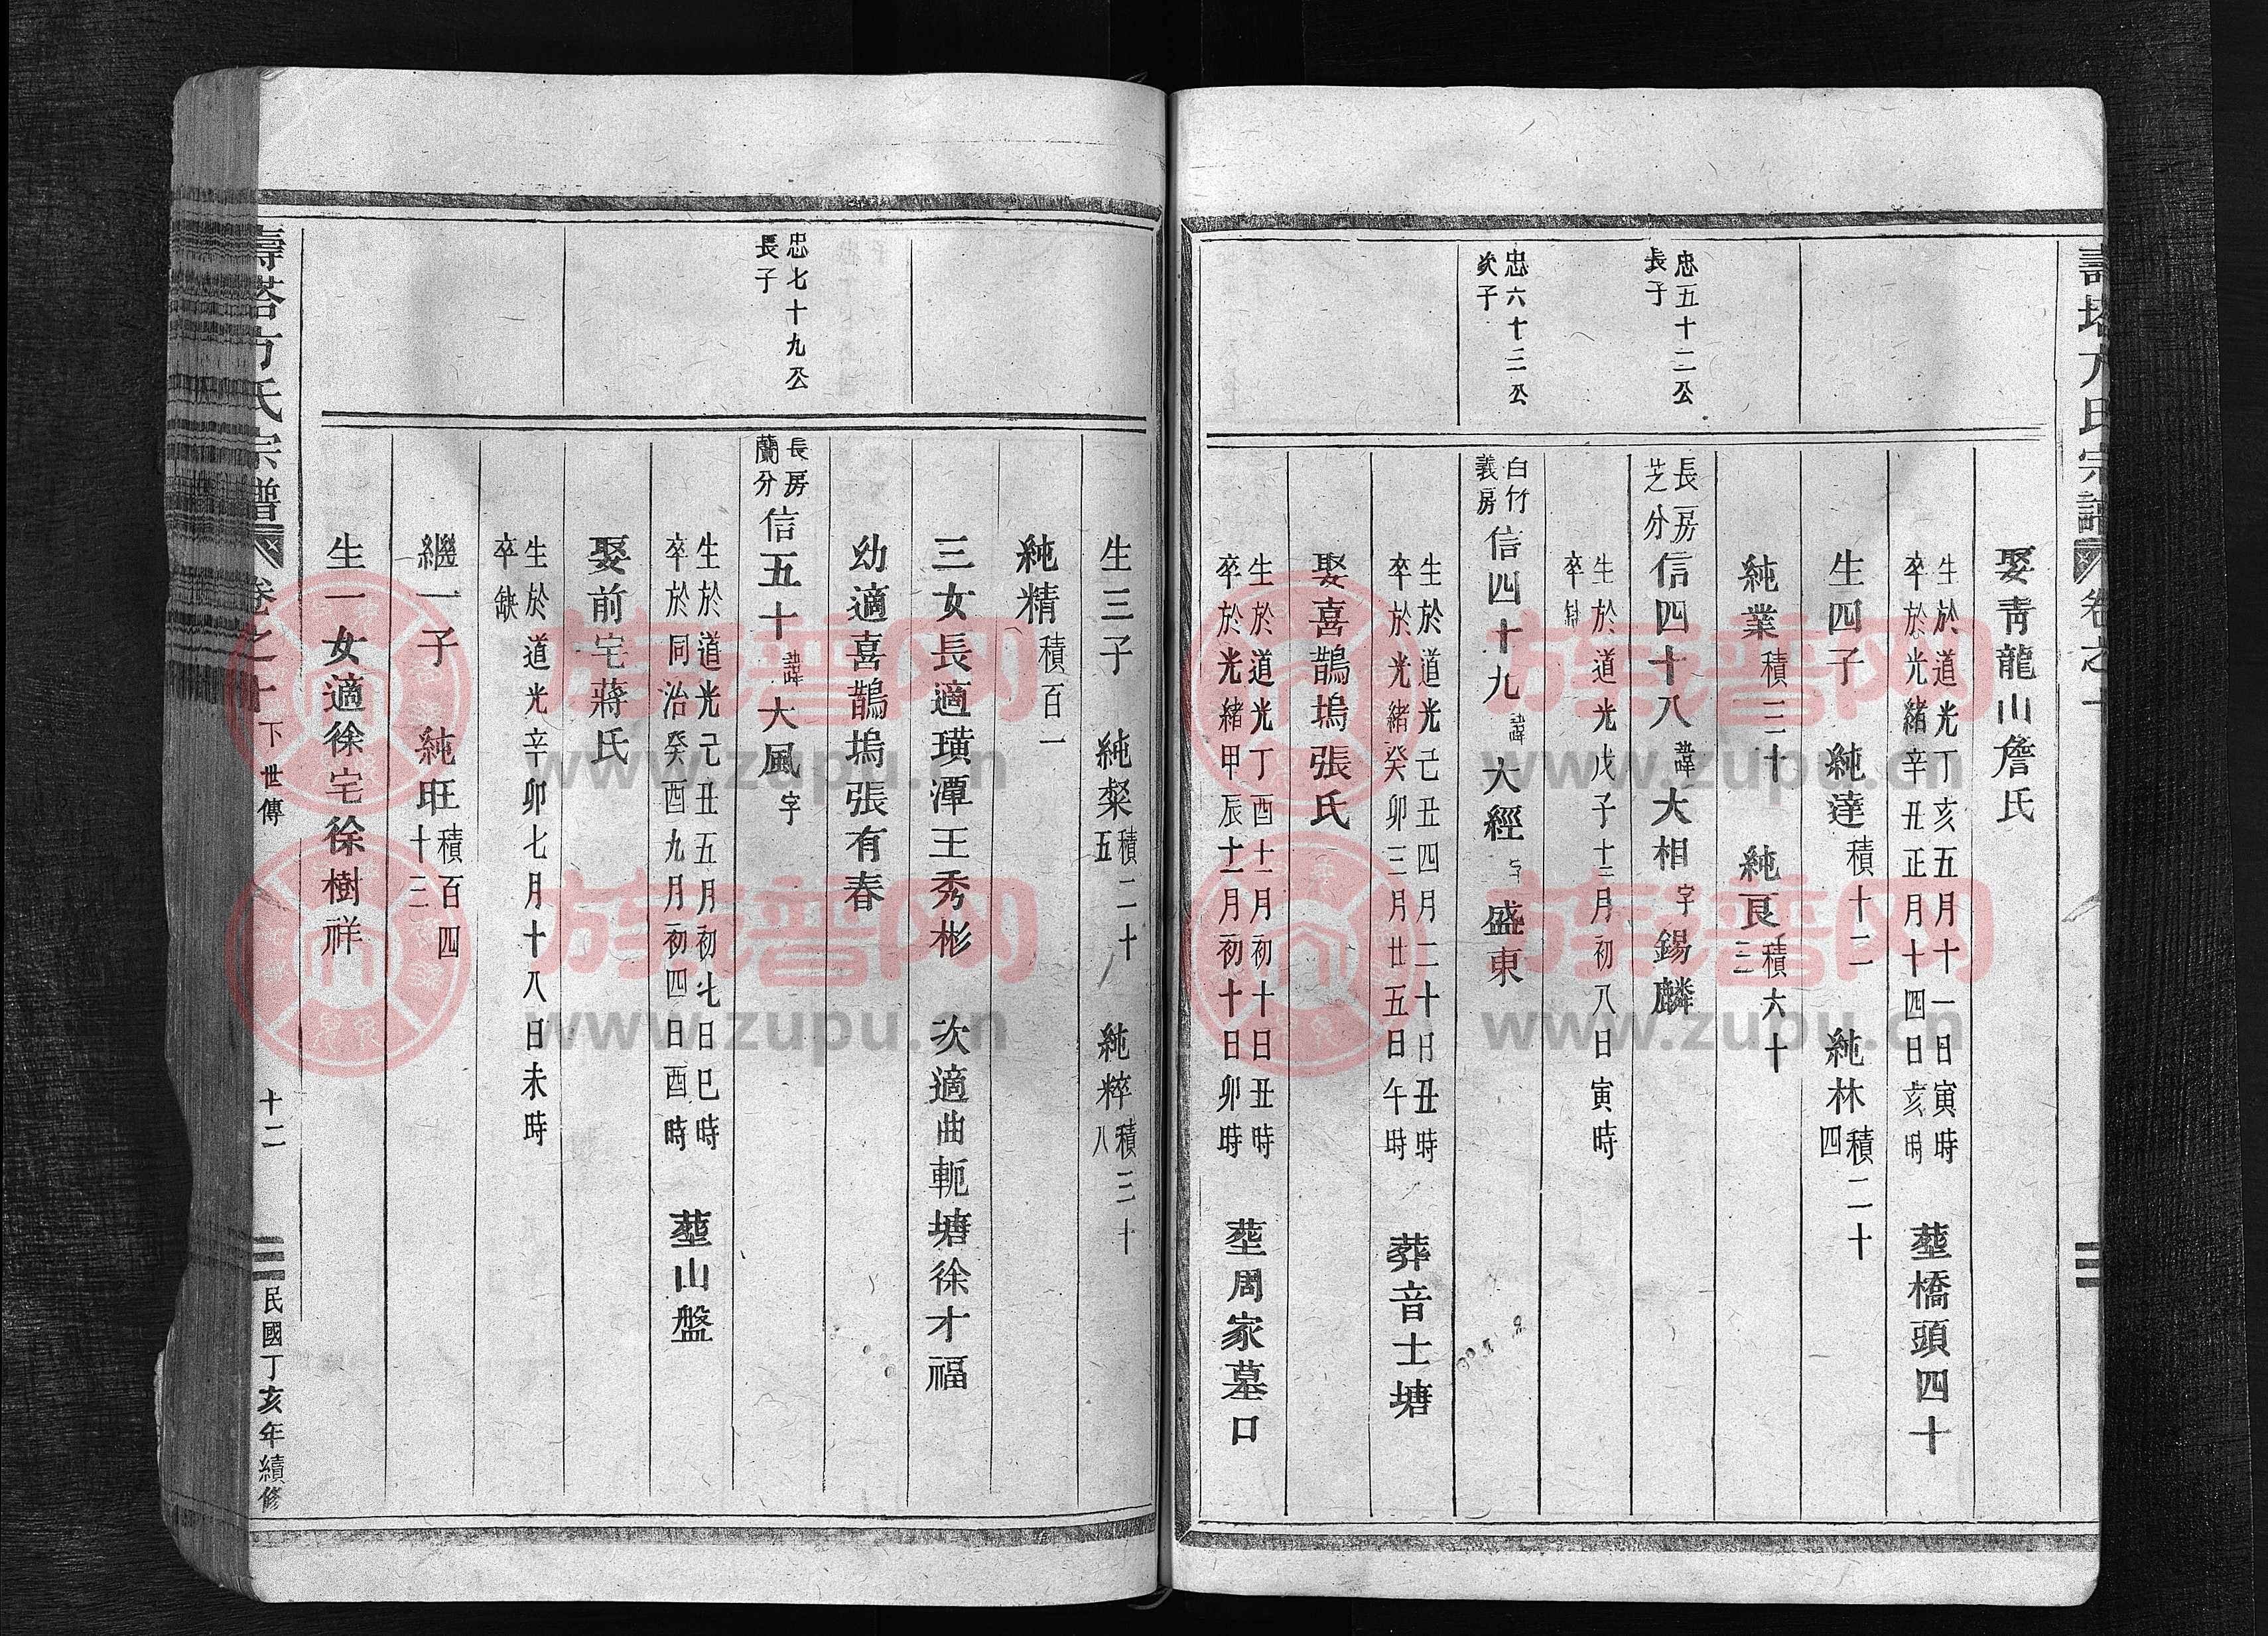 壽塔方氏宗譜
卷之十
娶青龍山詹氏
生於道光丁亥五月十一日寅時
卒於光緒辛丑正月十四日亥時
塟橋頭四十
生四子 純達積十二 純林積二十四
純業積三十 純良積六十三
忠五十二公
長子
長房
芝分
信四十八諱大相字錫麟
生於道光戊子十二月初八日寅時
卒缺
忠六十三公
次子
白竹
義房
信四十九諱大經字盛東
生於道光己丑四月二十日丑時
卒於光緒癸卯三月廿五日午時
葬音士塘
娶喜鵲塢張氏
生於道光丁酉十二月初十日丑時
卒於光緒甲辰十二月初十日卯時
塟周家墓口
生三子 純粲積二十五 純粹積三十八
純精積百一
三女長適璜潭王秀彬 次適曲軛塘徐才福
幼適喜鵲塢張有春
忠七十九公
長子
長房
蘭分
信五十諱大風字
生於道光己丑五月初七日巳時
卒於同治癸酉九月初四日酉時
塟山盤
娶前宅蔣氏
生於道光辛卯七月十八日未時
卒缺
繼一子 純旺積百四十三
生一女適徐宅徐樹祥
壽塔方氏宗譜
卷之十 下世傳 十二 民國丁亥年續修
族譜网
www.zupu.cn
族譜网
www.zupu.cn
族譜网
www.zupu.cn
族譜网
www.zupu.cn